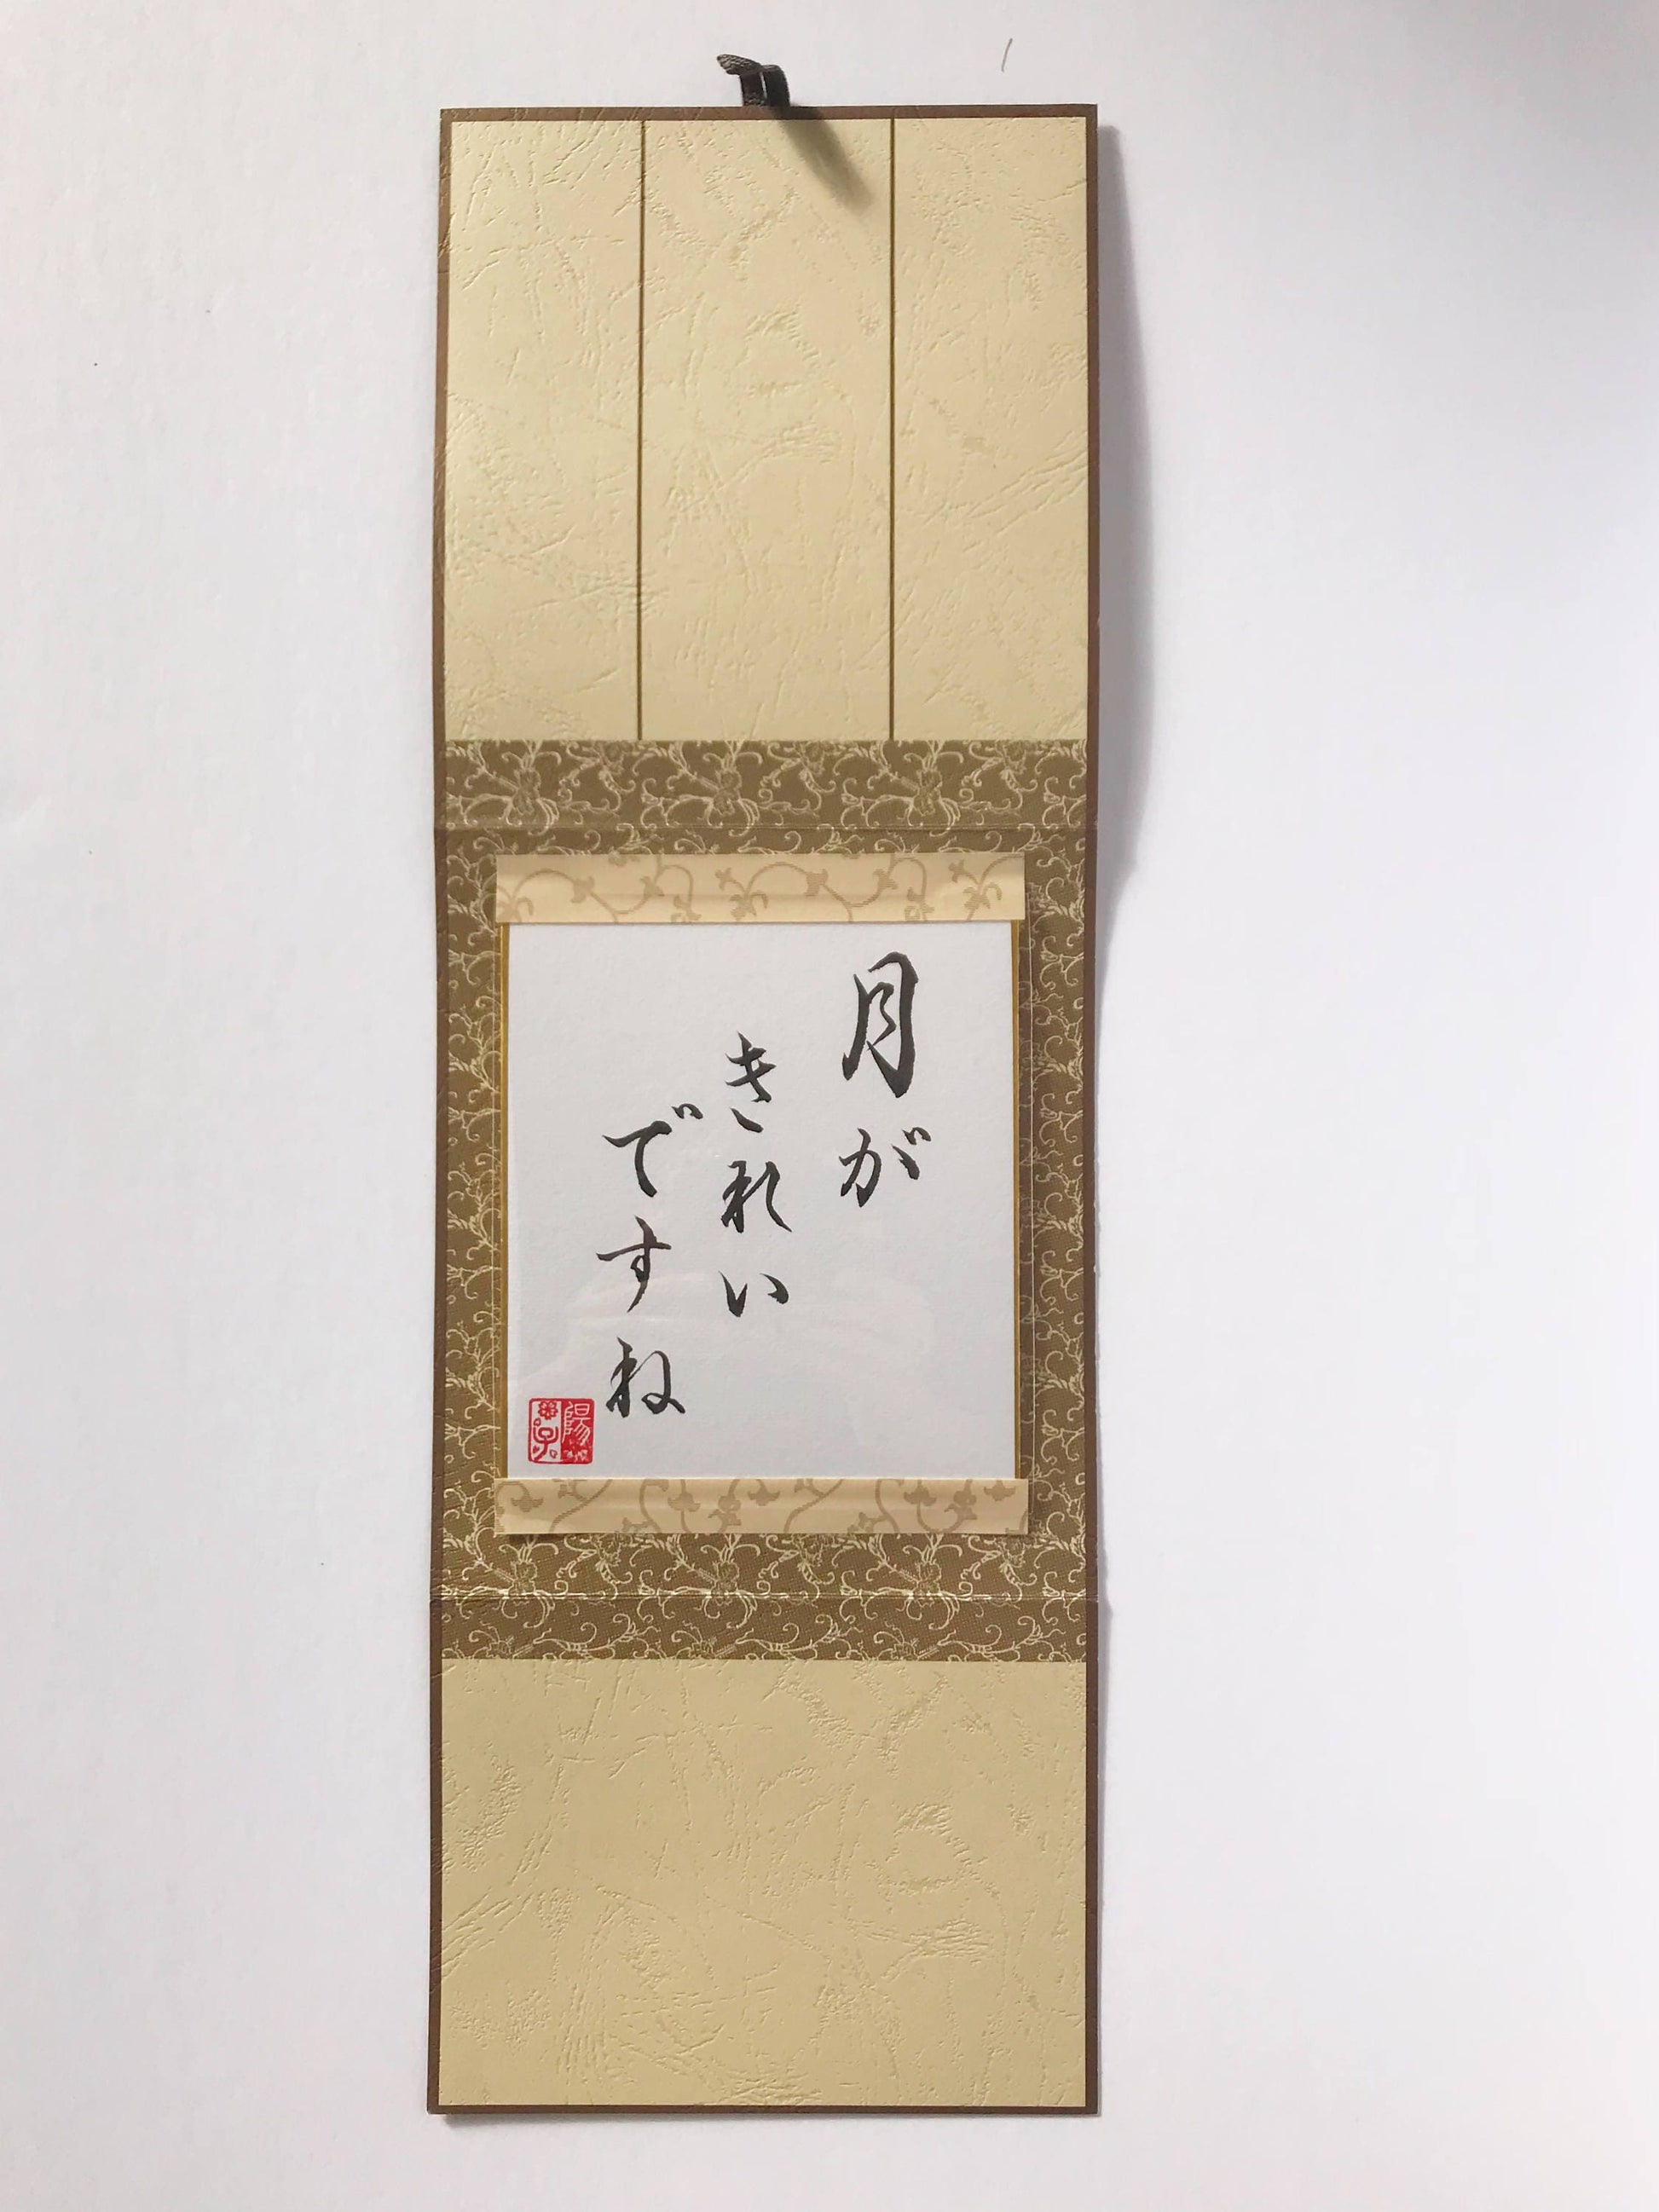 月が
きれい
ですね